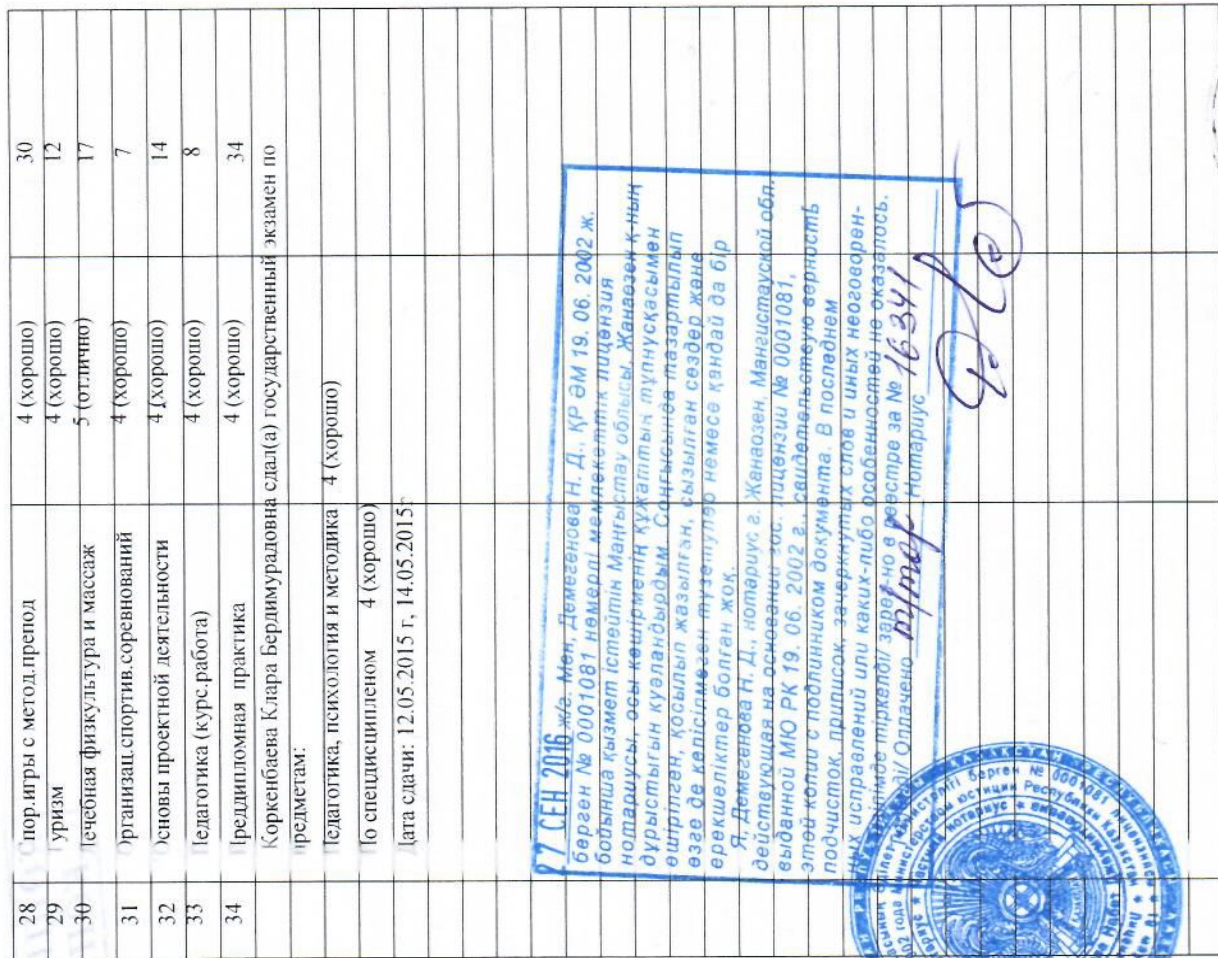 28 Спор.игры с метод.препод 4 (хорошо) 30
29 Туризм 4 (хорошо) 12
30 Лечебная физкультура и массаж 5 (отлично) 17
31 Организац.спортив.соревнований 4 (хорошо) 7
32 Основы проектной деятельности 4 (хорошо) 14
33 Педагогика (курс.работа) 4 (хорошо) 8
34 Предипломная практика 4 (хорошо) 34
Коркенбаева Клара Бердимурадовна сдал(а) государственный экзамен по
предметам:
Педагогика, психология и методика 4 (хорошо)
По спецдисциплином 4 (хорошо)
Дата сдачи: 12.05.2015 г, 14.05.2015г
27 СЕН 2016 ж/г. Мен, Демегенова Н. Д., ҚР ӘМ 19. 06. 2002 ж.
берген № 0001081 нөмерлі мемлекеттік лицензия
бойынша қызмет істейтін Маңғыстау облысы, Жаңаөзен қ-ның
нотариусы, осы көшірменің құжаттың түпнұсқасымен
дұрыстығын куәландырдым. Соңғысында тазартылып
өшірілген, қосылып жазылған, сызылған сөздер және
өзге де келісілмеген түзетулер немесе қандай да бір
ерекшеліктер болған жоқ.
Я, Демегенова Н. Д., нотариус г. Жанаозен, Мангистауской обл.
действующая на основании гос. лицензии № 0001081,
выданной МЮ РК 19. 06. 2002 г., свидетельствую верность
этой копии с подлинником документа. В последнем
подчисток, приписок, зачеркнутых слов и иных неоговорен-
ных исправлений или каких-либо особенностей не оказалось.
тіркелді/ зарег-но в реестре за № 16341
Оплачено Нотариус